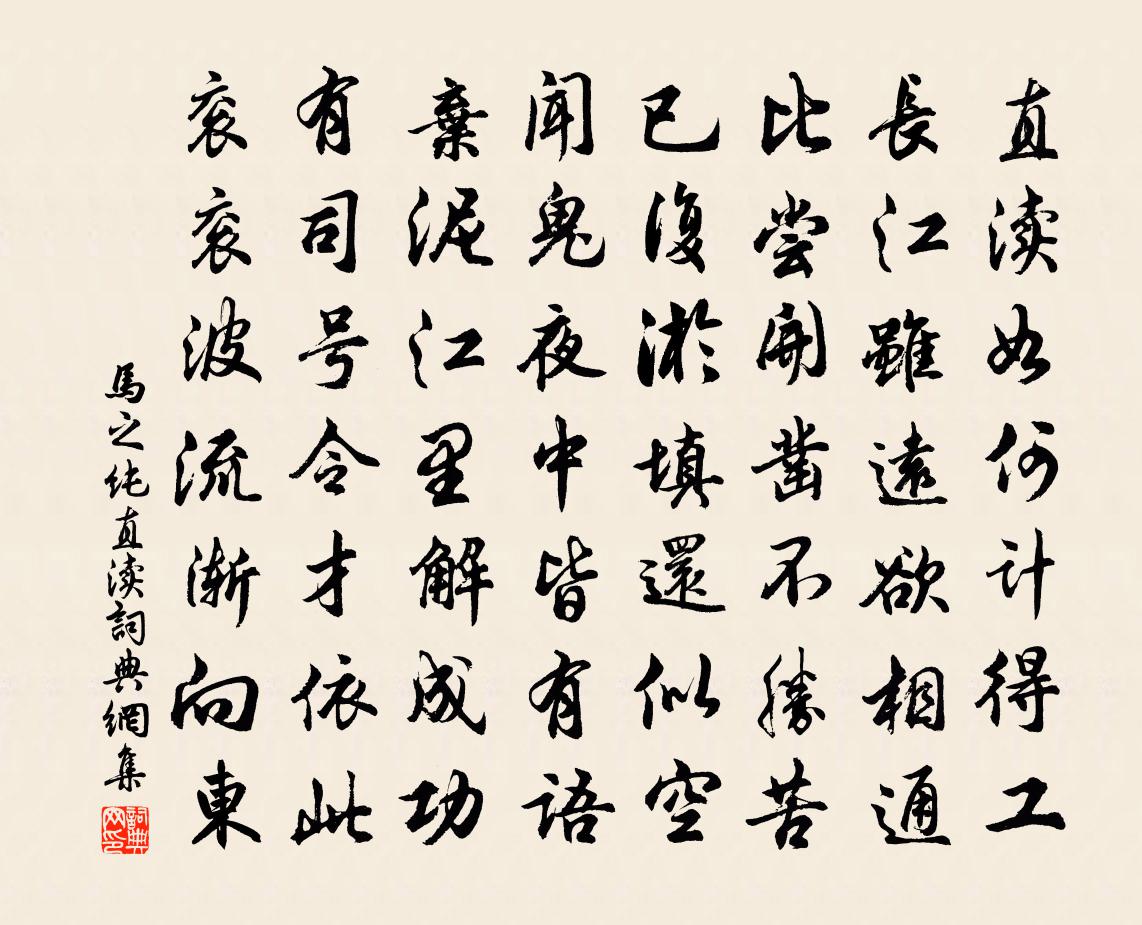 直渎如何计得工
長江雖遠欲相通
比尝開凿不勝苦
已復淤填還似空
闻鬼夜中皆有語
棄泥江里解成功
有司号令才依此
衮衮波流渐向東
馬之纯直渎詞典網集
詞典网印